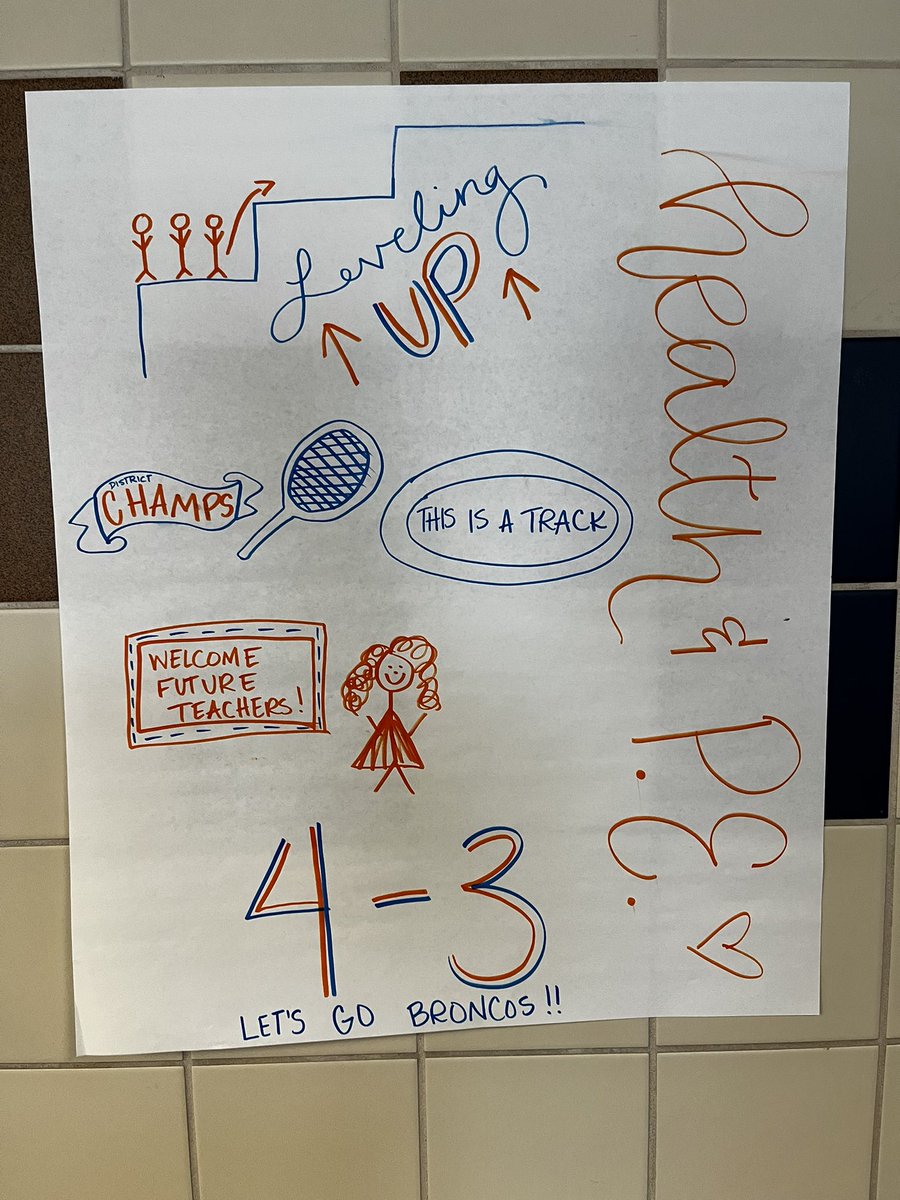 Leveling
UP
DISTRICT
CHAMPS
THIS IS A TRACK
WELCOME
FUTURE
TEACHERS!
4-3
LET'S GO BRONCOS!!
Health & P.E.